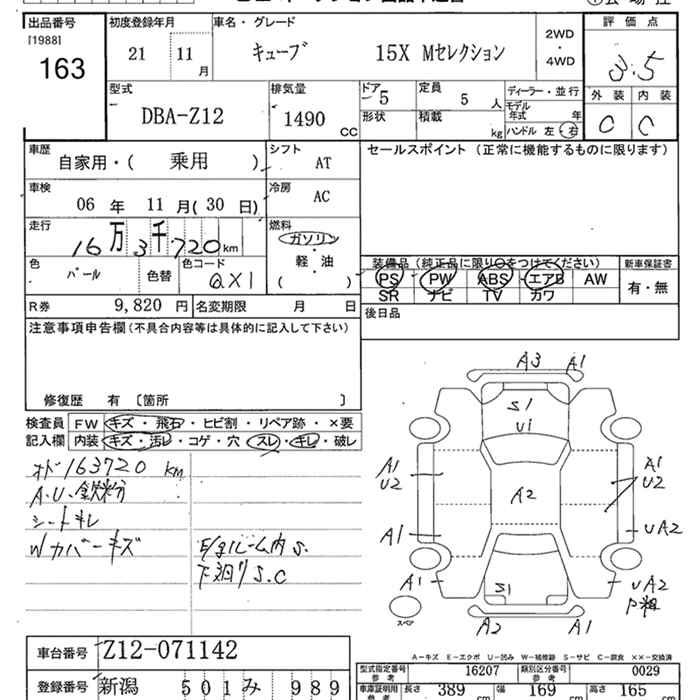 出品番号 初度登録年月 車名・グレード 評価点
[1988]
163
21 11月 キューブ 15X Mセレクション 2WD・4WD 3.5
型式 排気量 ドア 定員 ディーラー・並行 外装 内装
DBA-Z12 1490cc 5 5人 モデル年式 年 C C
形状 積載 kg ハンドル 左・右
車歴 シフト セールスポイント (正常に機能するものに限ります)
自家用・( 乗用 ) AT
車検 冷房
06年 11月(30日) AC
走行 燃料
16万3千720km ガソリン・軽・油( )
色 色替 色コード 装備品 (純正品に限り○をつけてください) 新車保証書
パール QX1 PS PW ABS エアB AW 有・無
SR ナビ TV カワ
R券 9,820円 名変期限 月 日 後日品
注意事項申告欄(不具合内容等は具体的に記入して下さい)
修復歴 有 〔箇所 〕
検査員 FW キズ・飛石・ヒビ割・リペア跡・×要
記入欄 内装 キズ・汚レ・コゲ・穴・スレ・キレ・破レ
オド163720km
A.U.鉄粉
シートキレ
Wカバーキズ E/gルーム内S.
下廻りS.C
A3 A1
S1
U1
A1 U2 A2 A1 U2
A1 UA2
A1 S1 UA2
P粗
スペア A2 A1
A-キズ E-エクボ U-凹み W-補修跡 S-サビ C-腐食 ××-交換済
車台番号 Z12-071142
型式指定番号 参考 16207 類別区分番号 参考 0029
登録番号 新潟 501 み 989
車庫証明用 参考 長さ 389cm 幅 169cm 高さ 165cm